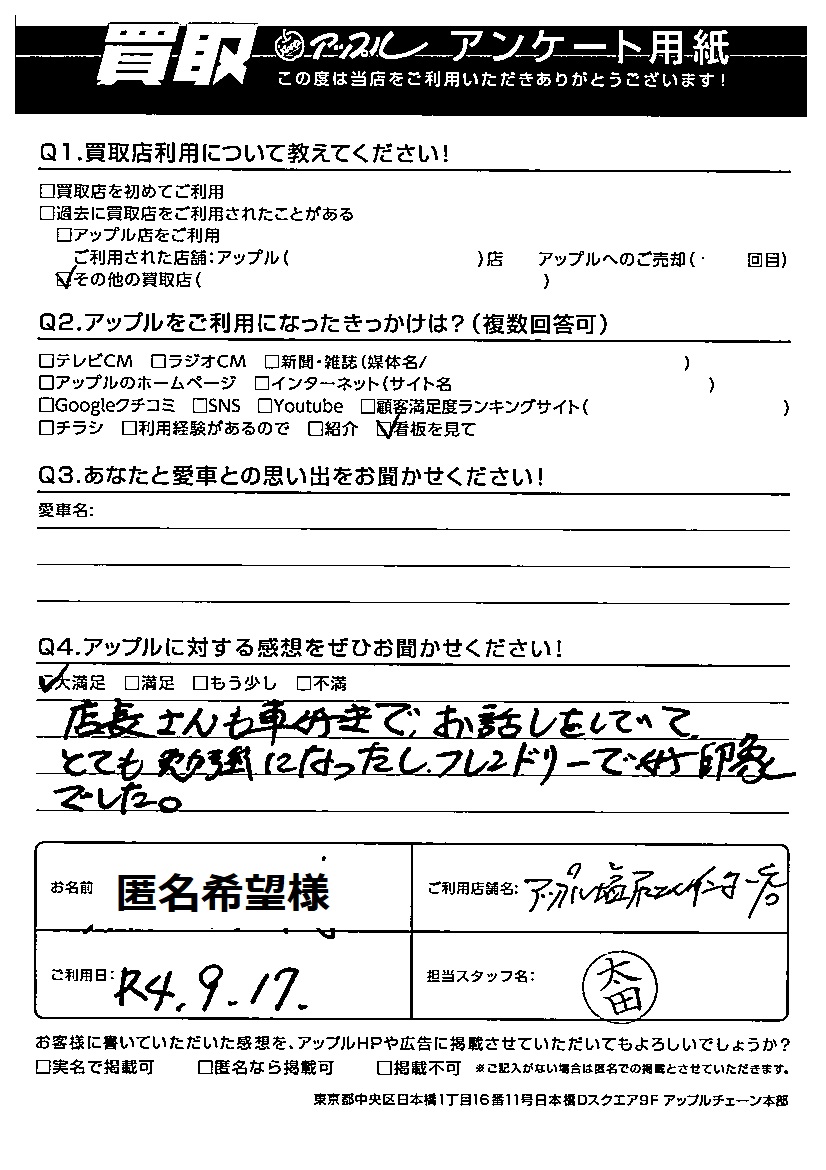 買取 アップル アンケート用紙
この度は当店をご利用いただきありがとうございます!
Q1.買取店利用について教えてください!
□買取店を初めてご利用
□過去に買取店をご利用されたことがある
□アップル店をご利用
ご利用された店舗:アップル( )店 アップルへのご売却( 回目)
☑その他の買取店( )
Q2.アップルをご利用になったきっかけは?(複数回答可)
□テレビCM □ラジオCM □新聞・雑誌(媒体名/ )
□アップルのホームページ □インターネット(サイト名 )
□Googleクチコミ □SNS □Youtube □顧客満足度ランキングサイト( )
□チラシ □利用経験があるので □紹介 ☑看板を見て
Q3.あなたと愛車との思い出をお聞かせください!
愛車名:
Q4.アップルに対する感想をぜひお聞かせください!
☑大満足 □満足 □もう少し □不満
店長さんも車好きで、お話しをしていて、
とても勉強になったし、フレンドリーで好印象
でした。
お名前 匿名希望様 ご利用店舗名: アップル塩尻北インター店
ご利用日: R4.9.17. 担当スタッフ名: 太田
お客様に書いていただいた感想を、アップルHPや広告に掲載させていただいてもよろしいでしょうか?
□実名で掲載可 □匿名なら掲載可 □掲載不可 ※ご記入がない場合は匿名での掲載とさせていただきます。
東京都中央区日本橋1丁目16番11号日本橋Dスクエア9F アップルチェーン本部